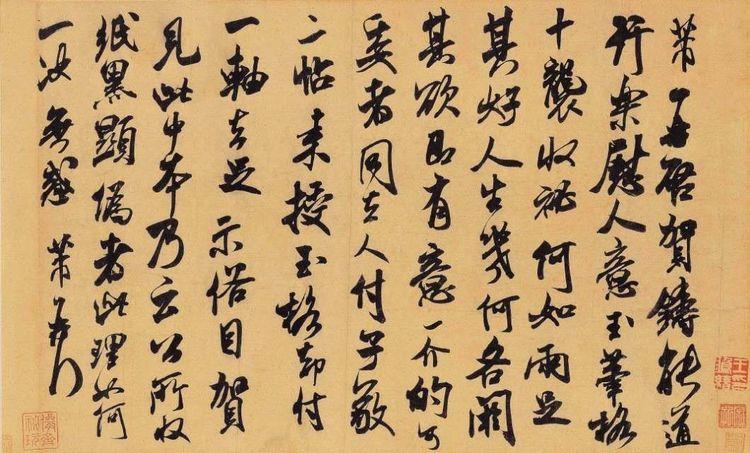 芾頓首啓賀鑄能道
行樂慰人意玉筆格
十襲收祕何如兩足
其好人生幾何各闕
其欲即有意一介的可
委者同去人付子敬
二帖來授玉格却付
一軸去足示俗目賀
見此中本乃云公所收
紙黑顯偽者此理如何
一決無惑 芾頓首